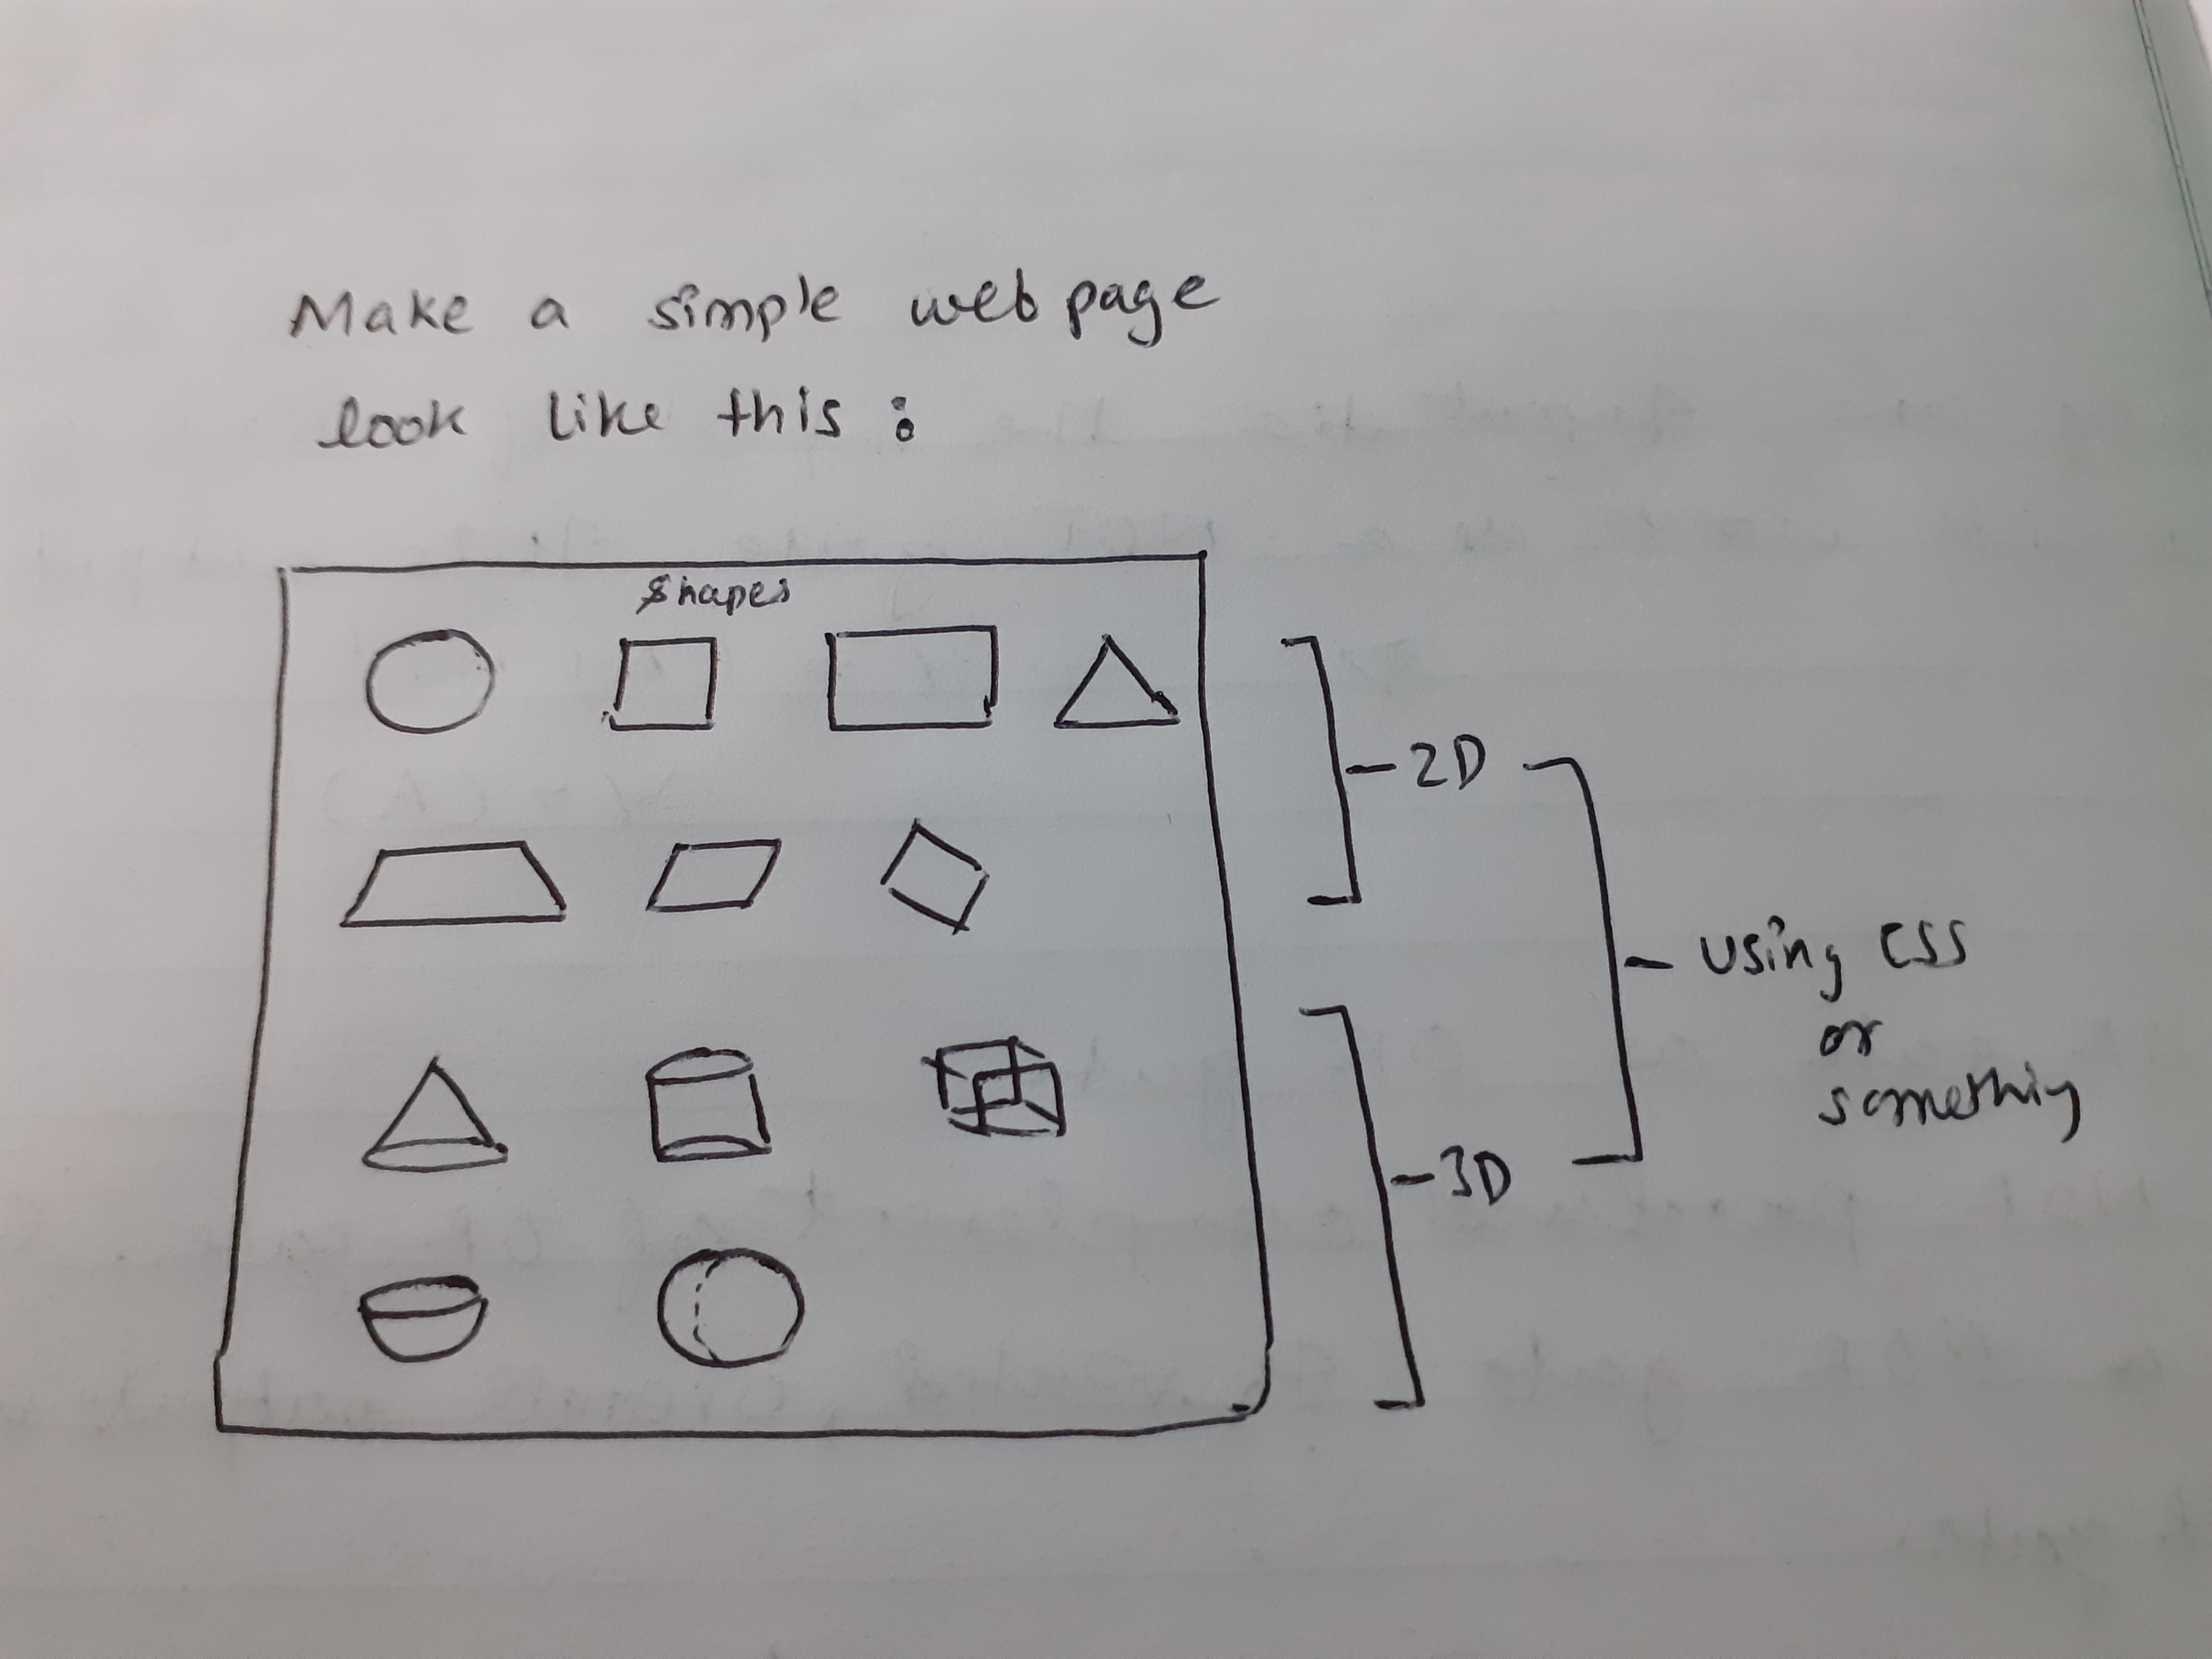 Make a simple webpage
look like this :
Shapes
2D
using CSS
or
somethig
3D